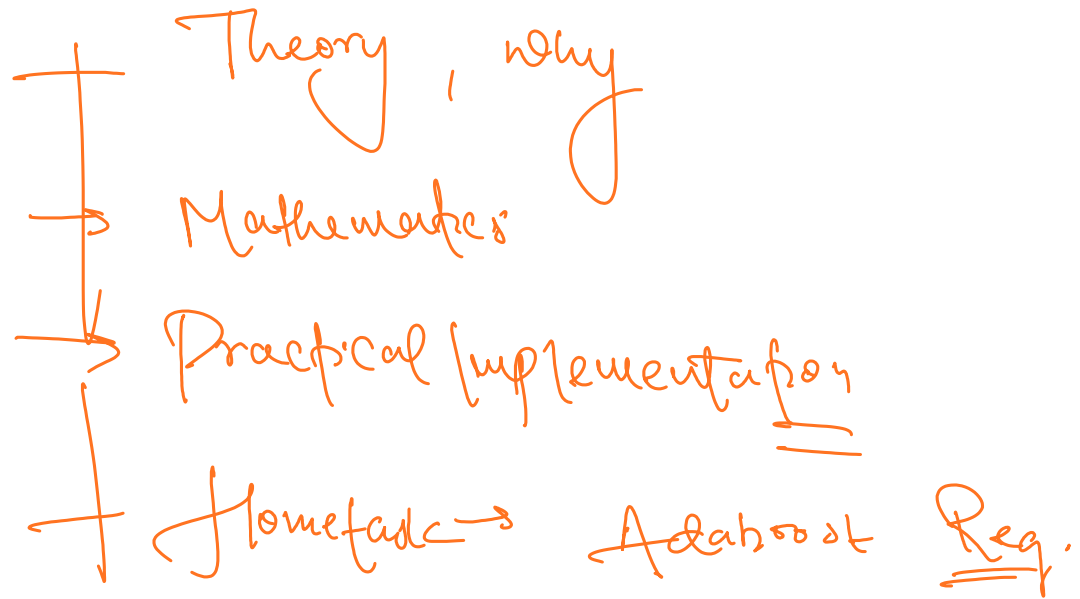 Theory, why
Mathematics
Practical Implementation
Hometask → Adaboost Reg.